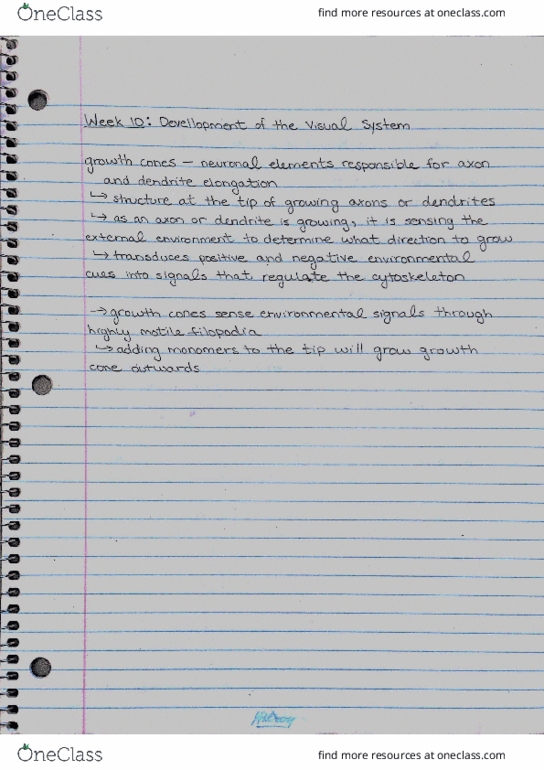 OneClass
find more resources at oneclass.com
Week 10: Devellopment of the Visual System
growth cones – neuronal elements responsible for axon
and dendrite elongation
↳ structure at the tip of growing axons or dendrites
↳ as an axon or dendrite is growing, it is sensing the
external environment to determine what direction to grow
↳ transduces positive and negative environmental
cues into signals that regulate the cytoskeleton
→ growth cones sense environmental signals through
highly motile filopodia
↳ adding monomers to the tip will grow growth
cone outwards
OneClass
find more resources at oneclass.com